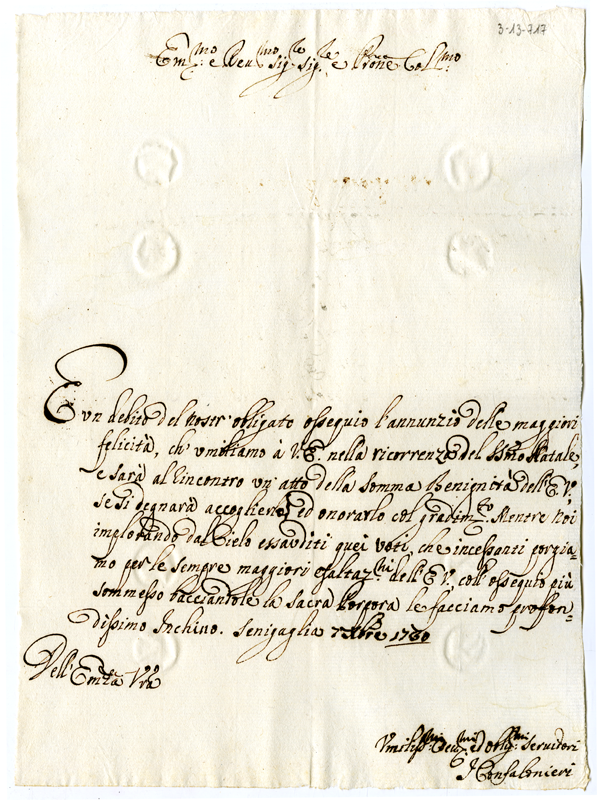 3-13-717
Em.mo e Rev.mo Sig.re Sig.re e Prone Col.mo
E un debito del nostr' obligato osseguio l'annunzio delle maggiori
felicità, ch' umiliamo à V.E. nella ricorrenza del SSmo Natale,
e sarà al Incontro un' atto della somma Benignità dell' E.V.
se si degnarà accoglierlo, ed onorarlo col gradim.to Mentre Noi
implorando dal Cielo essauditi quei voti, che incessanti porgia=
mo per le sempre maggiori esaltaz.ni dell' E.V., coll' osseguio più
sommesso bacciandole la Sacra Porpora le facciamo proffon=
dissimo Inchino. Senigaglia 7mbre 1730
Dell' Emza Vra
Vmiliss.mi Deu.mi ed obblig.mi Seruidori
I Confalonieri